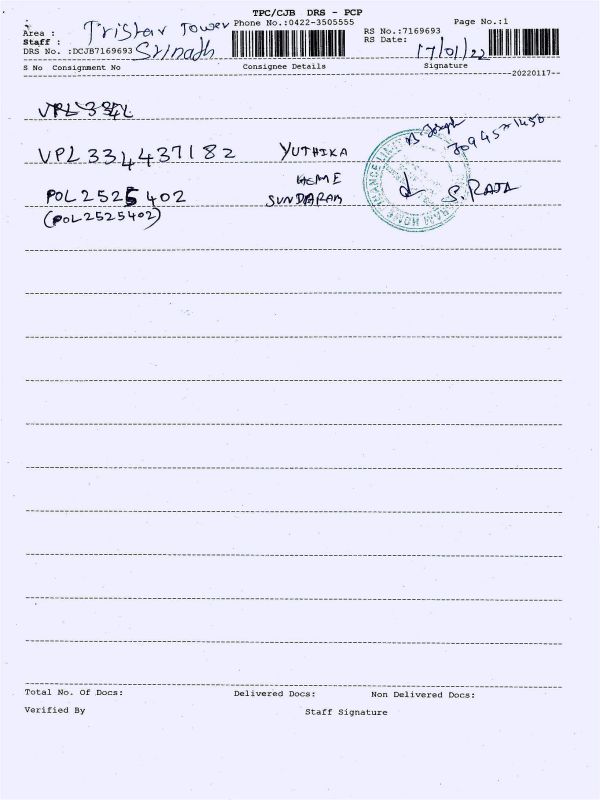 TPC/CJB DRS - PCP
Area : Tristar Tower Phone No.:0422-3505555 Page No.:1
Staff : Srinath RS No.:7169693
DRS No. :DCJB7169693 RS Date: 17/01/22
S No Consignment No Consignee Details Signature
--20220117--
VPL334437182 YUTHIKA
POL2525402 HOME
SUNDARAM S. RAJA
(POL2525402)
Total No. Of Docs: Delivered Docs: Non Delivered Docs:
Verified By Staff Signature